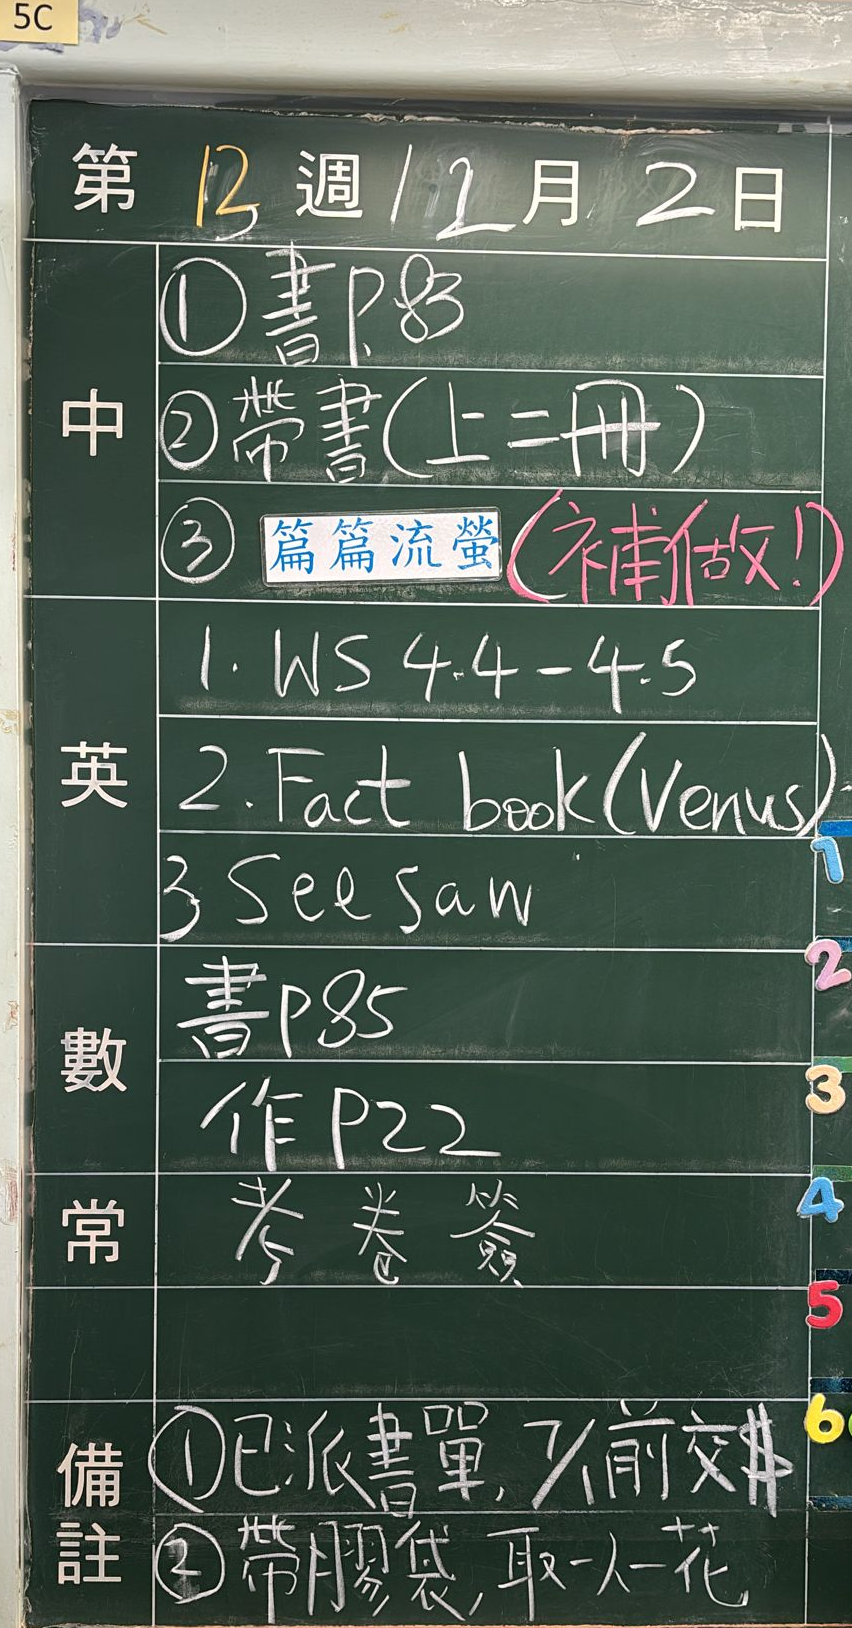 5C
第 13 週 12 月 2 日
中
① 書P.83
② 帶書(上二冊)
③ 篇篇流螢 (補做!)
英
1. WS 4.4-4.5
2. Fact book (Venus)
3 Seesaw
數
書P85
作P22
常
考卷簽
備註
① 已派書單, 7/1前交$
② 帶膠袋, 取一人一花
1
2
3
4
5
6